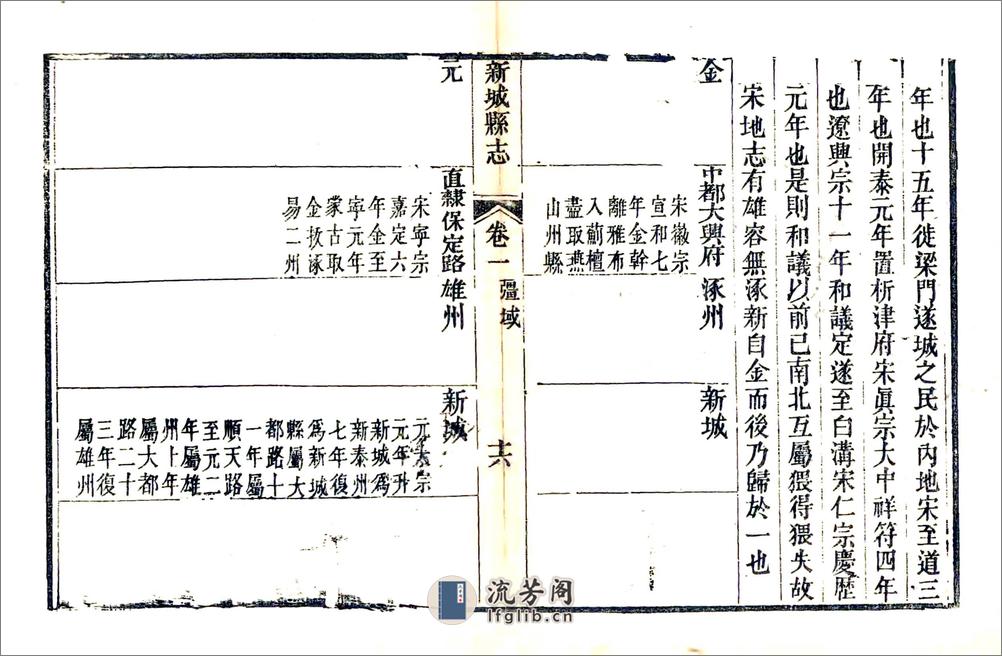 年也十五年徙梁門遂城之民於內地宋至道三
年也開泰元年置析津府宋眞宗大中祥符四年
也遼興宗十一年和議定遂至白溝宋仁宗慶歴
元年也是則和議以前已南北互屬猥得猥失故
宋地志有雄容無涿新自金而後乃歸於一也
金
中都大興府
宋徽宗
宣和七
年金幹
離雅布
入薊檀
盡取燕
山州縣
涿州
新城
新城縣志
卷一
疆域
十六
元
直隸保定路
宋寧宗
嘉定六
年金至
寧元年
蒙古取
金拔涿
易二州
雄州
新城
元太宗
元年升
新城爲
新泰州
七年復
爲新城
縣屬大
都路十
一年屬
順天路
至元二
年屬雄
州十年
屬大都
路二十
三年復
屬雄州
流芳阁
lfglib.cn